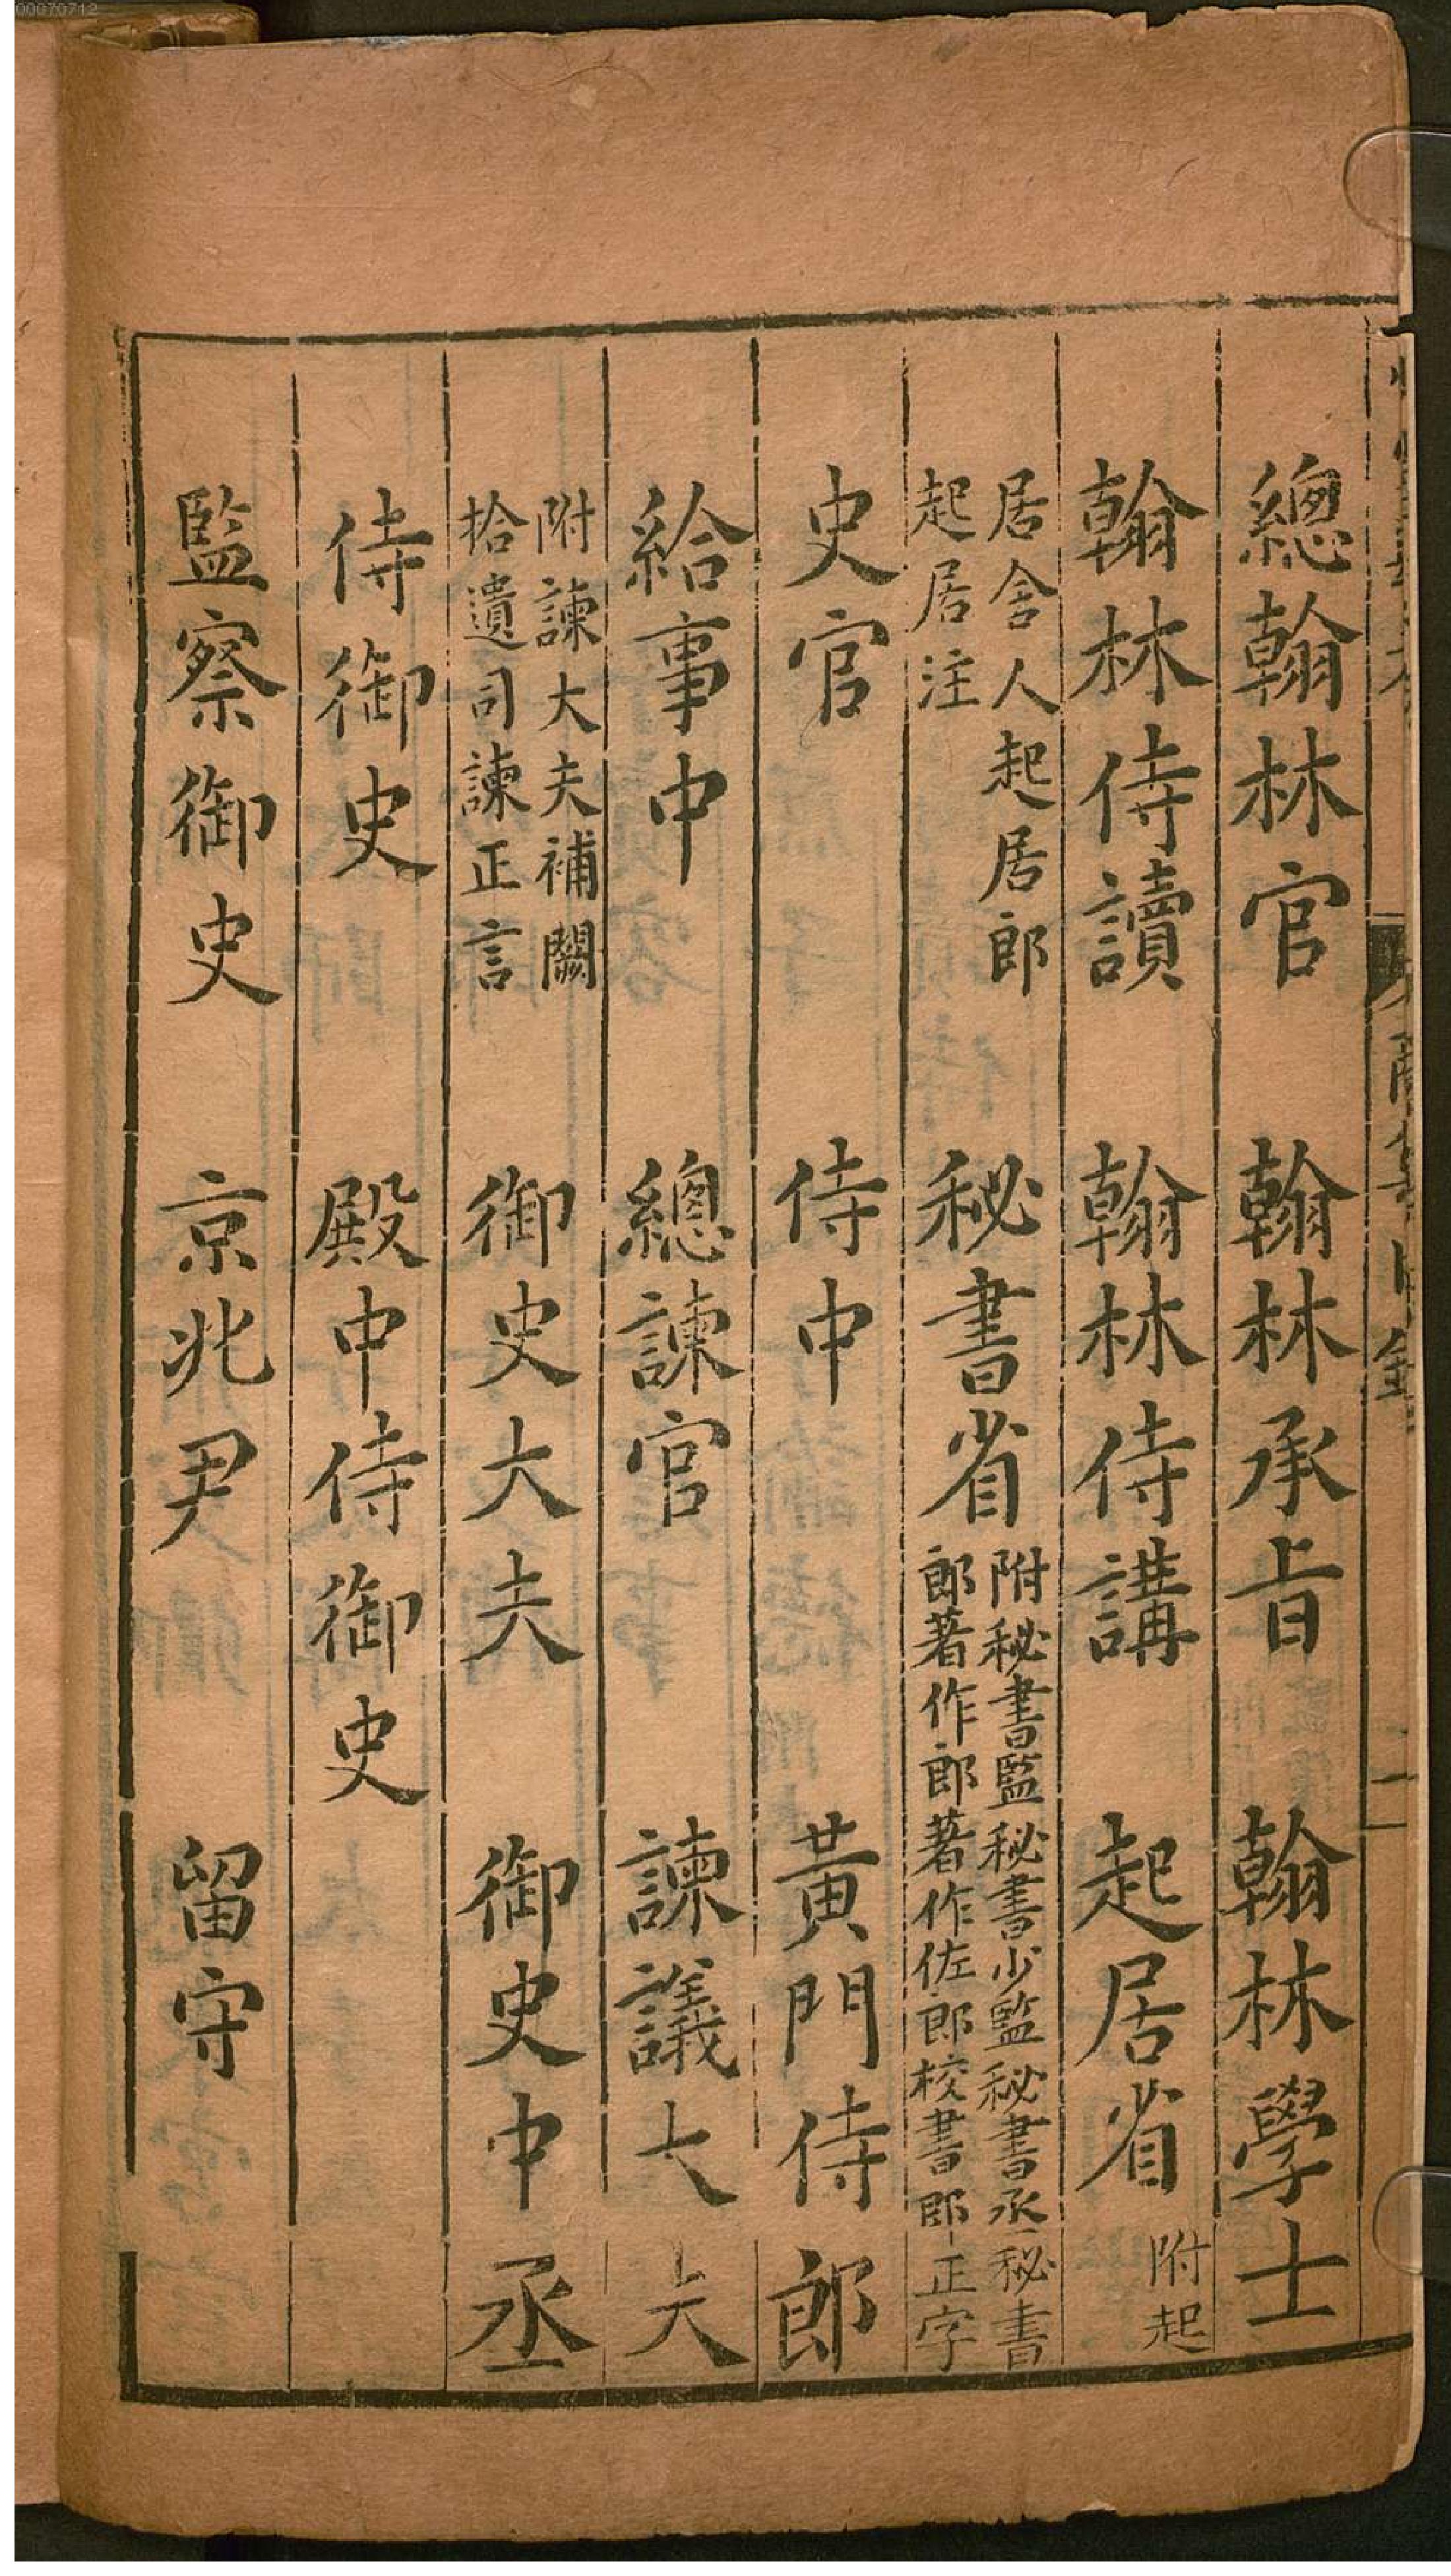 00070712
總翰林官　翰林承旨　翰林學士
翰林侍讀　翰林侍講　起居省附起
居舍人起居郎
起居注
秘書省
附秘書監秘書少監秘書丞秘書
郎著作郎著作佐郎校書郎正字
史官　侍中　黃門侍郎
給事中　總諫官　諫議大夫
附諫大夫補闕
拾遺司諫正言
御史大夫　御史中丞
侍御史　殿中侍御史
監察御史　京兆尹　留守